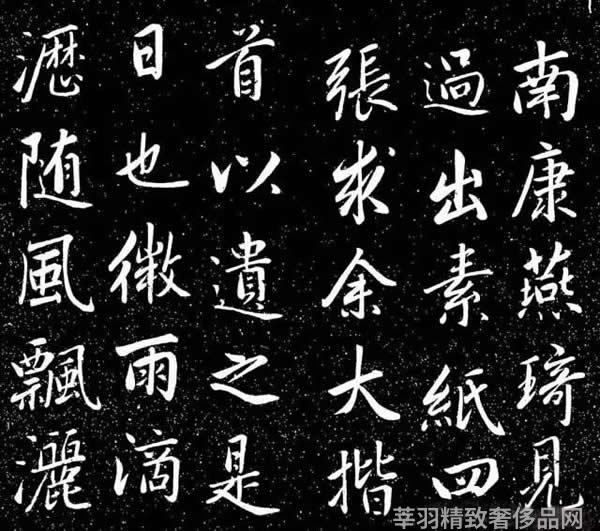 南康燕琦見
過出素紙四
張求余大揩
首以遺之是
日也微雨滴
瀝随風飄灑
莘羽精致奢侈品网